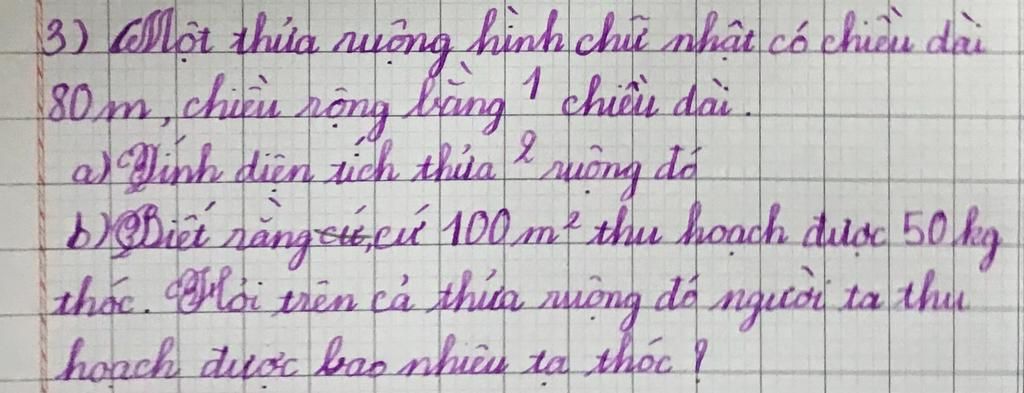 3) Một thửa ruộng hình chữ nhật có chiều dài
80 m, chiều rộng bằng 1 chiều dài.
a) Tính diện tích thửa 2 ruộng đó
b) Biết rằng cứ, cứ 100 m² thu hoạch được 50 kg
thóc. Hỏi trên cả thửa ruộng đó người ta thu
hoạch được bao nhiêu tạ thóc?